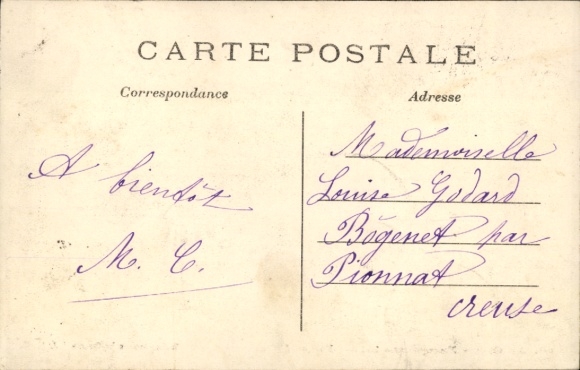 CARTE POSTALE
Correspondance
Adresse
A bientôt
M. C.
Mademoiselle
Louise Godard
Bôgenet par
Pionnat
Creuse